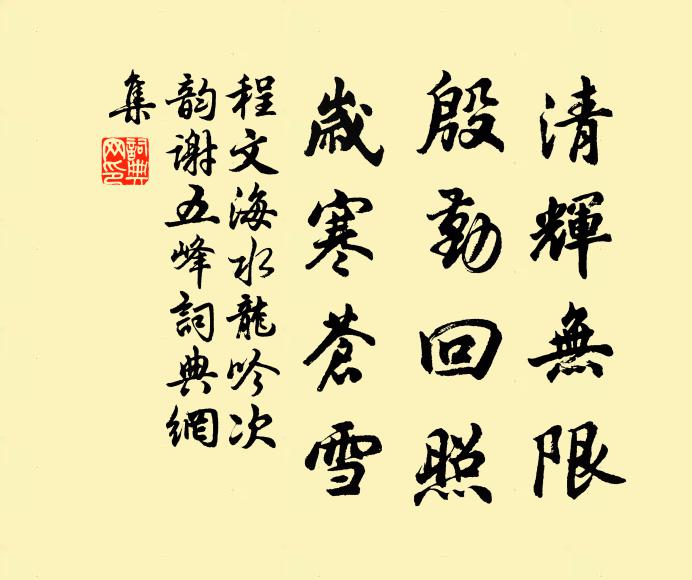 清輝無限
殷勤回照
歲寒蒼雪
程文海水龍吟次
韵謝五峰詞典網
集
詞典
网印